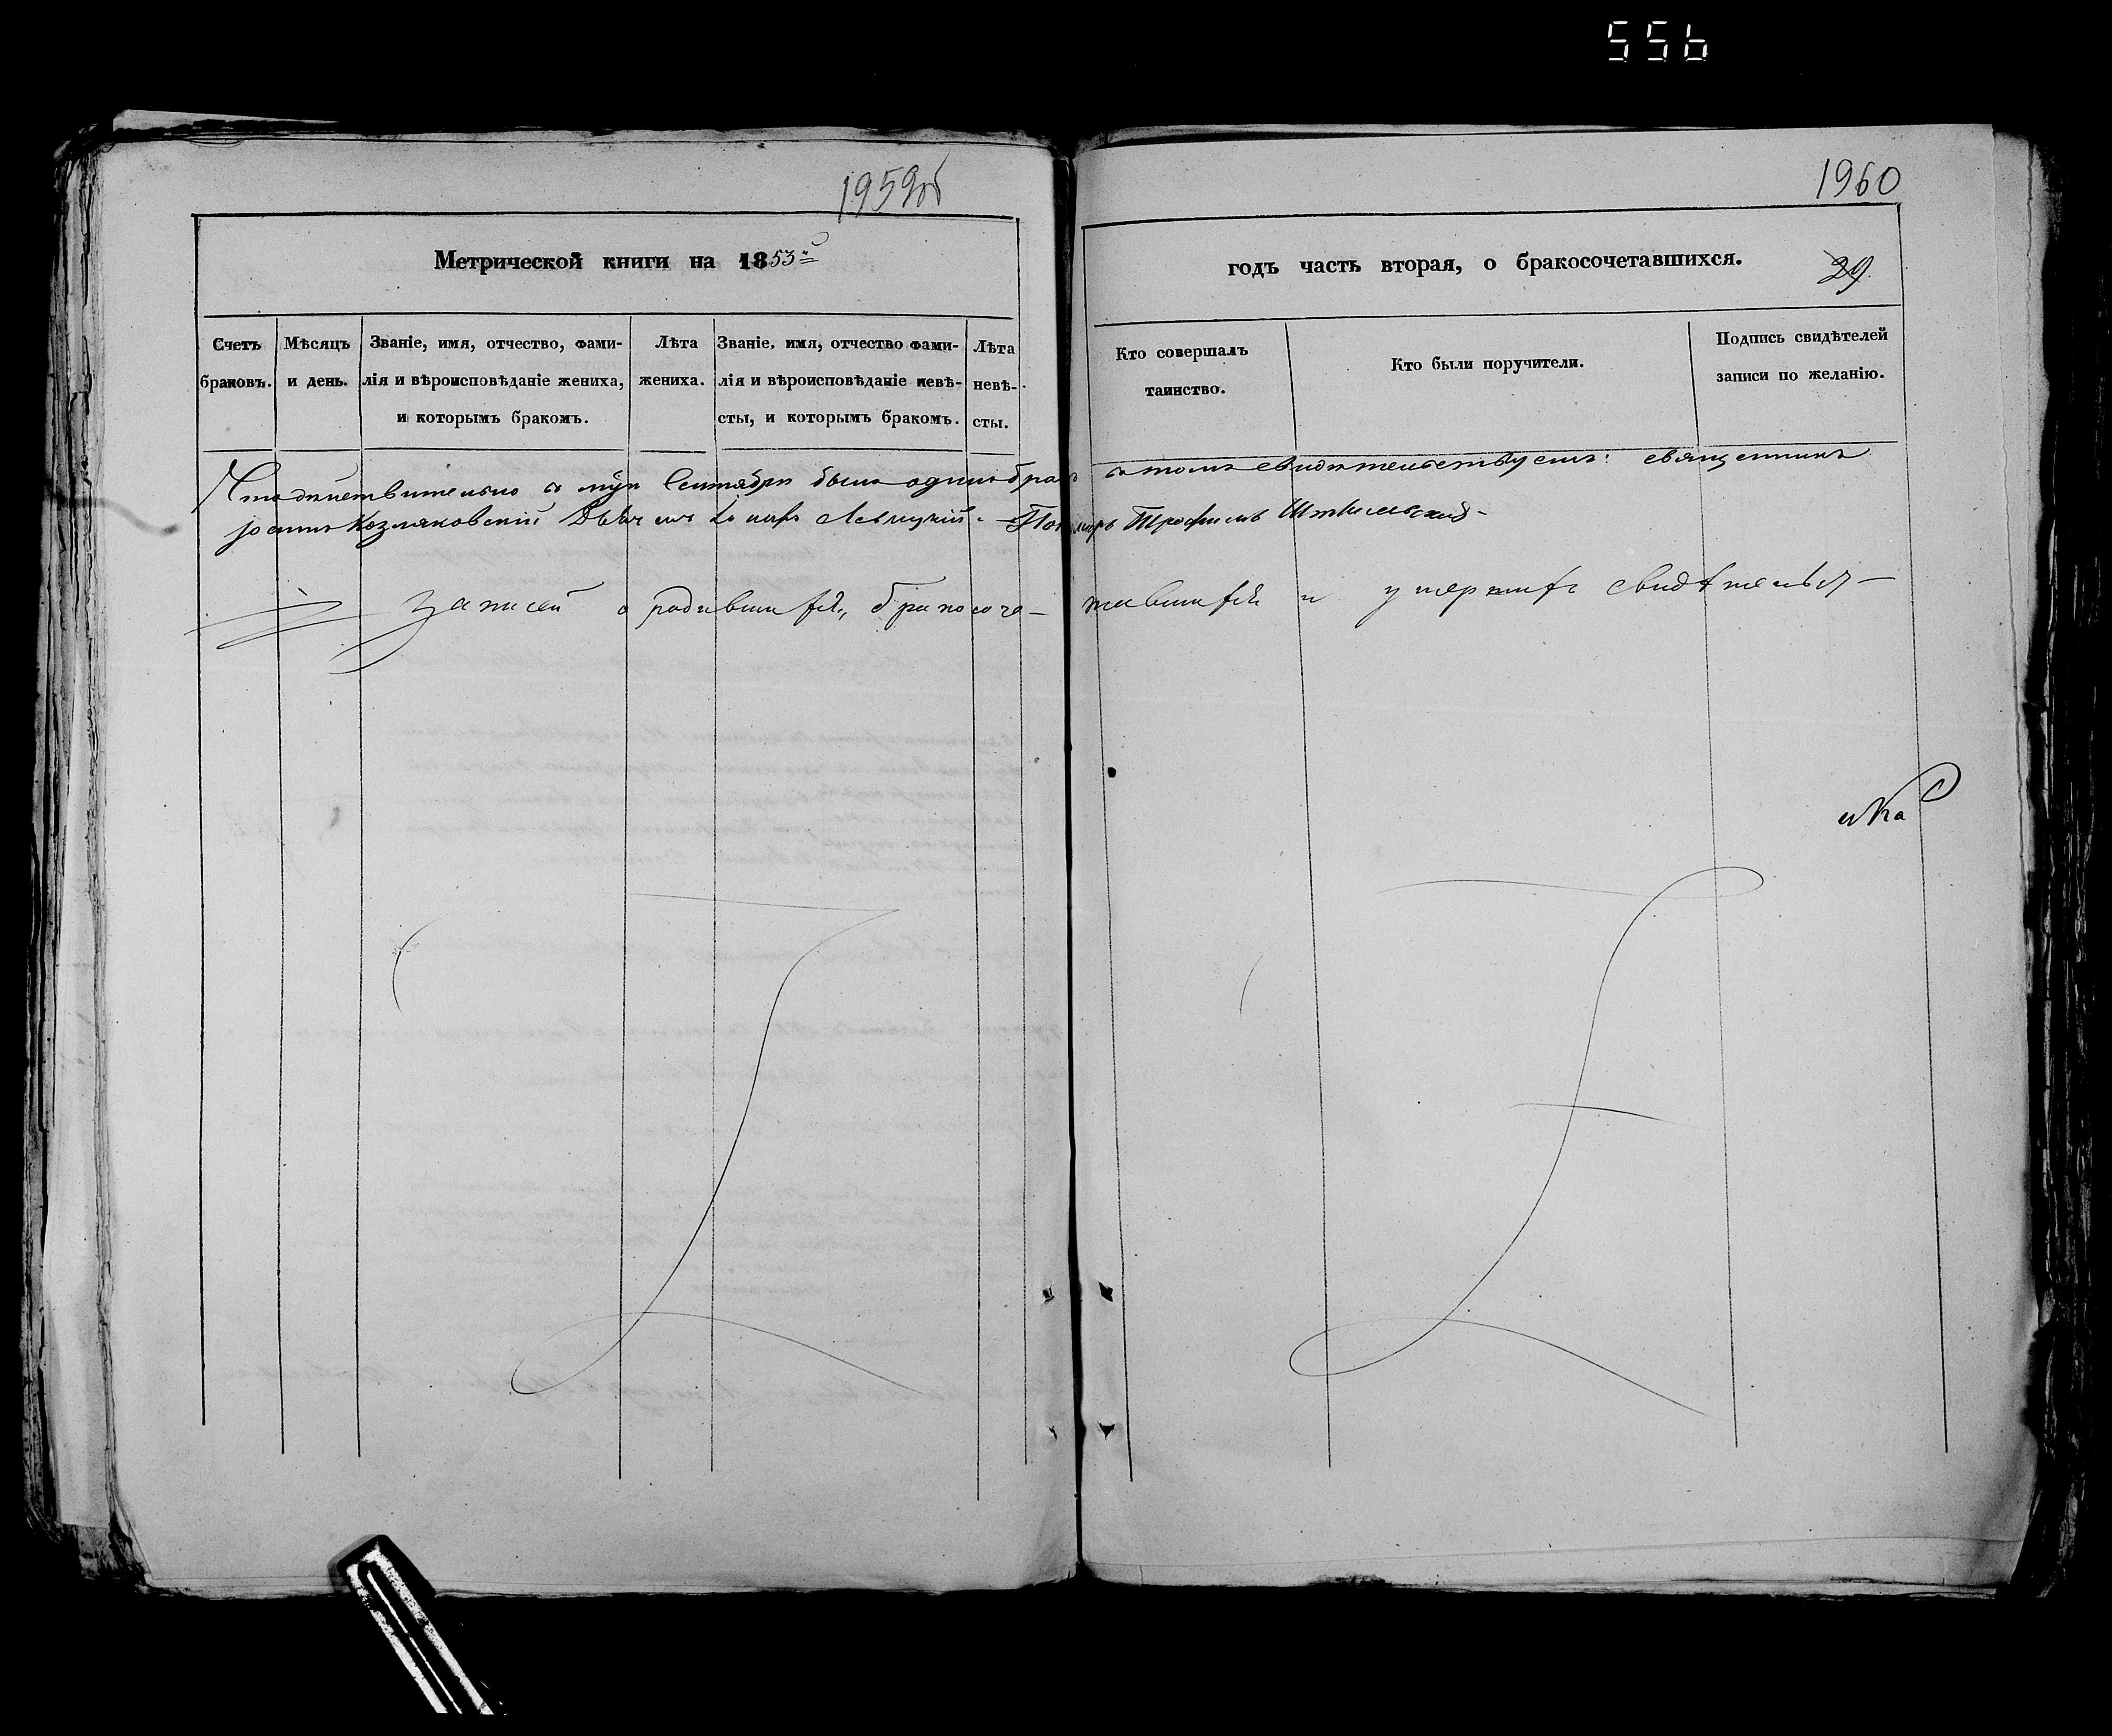 556
1959об
1960
Метрической книги на 1853й
годъ часть вторая, о бракосочетавшихся.
29
Счетъ браковъ.
Мѣсяцъ и день.
Званіе, имя, отчество, фами-
лія и вѣроисповѣданіе жениха,
и которымъ бракомъ.
Лѣта жениха.
Званіе, имя, отчество фами-
лія и вѣроисповѣданіе невѣ-
сты, и которымъ бракомъ.
Лѣта
невѣ-
сты.
Кто совершалъ
таинство.
Кто были поручители.
Подпись свидѣтелей
записи по желанію.
Что дѣйствительно в Сентябрѣ былъ одинъ бракъ в томъ свидѣтельствуемъ: священникъ
Іоаннъ Козляковскій Левицкій. Пономарь Трофимъ
Записей о родившихся, бракосоче- тавшихся и умершихъ свидѣтельст-